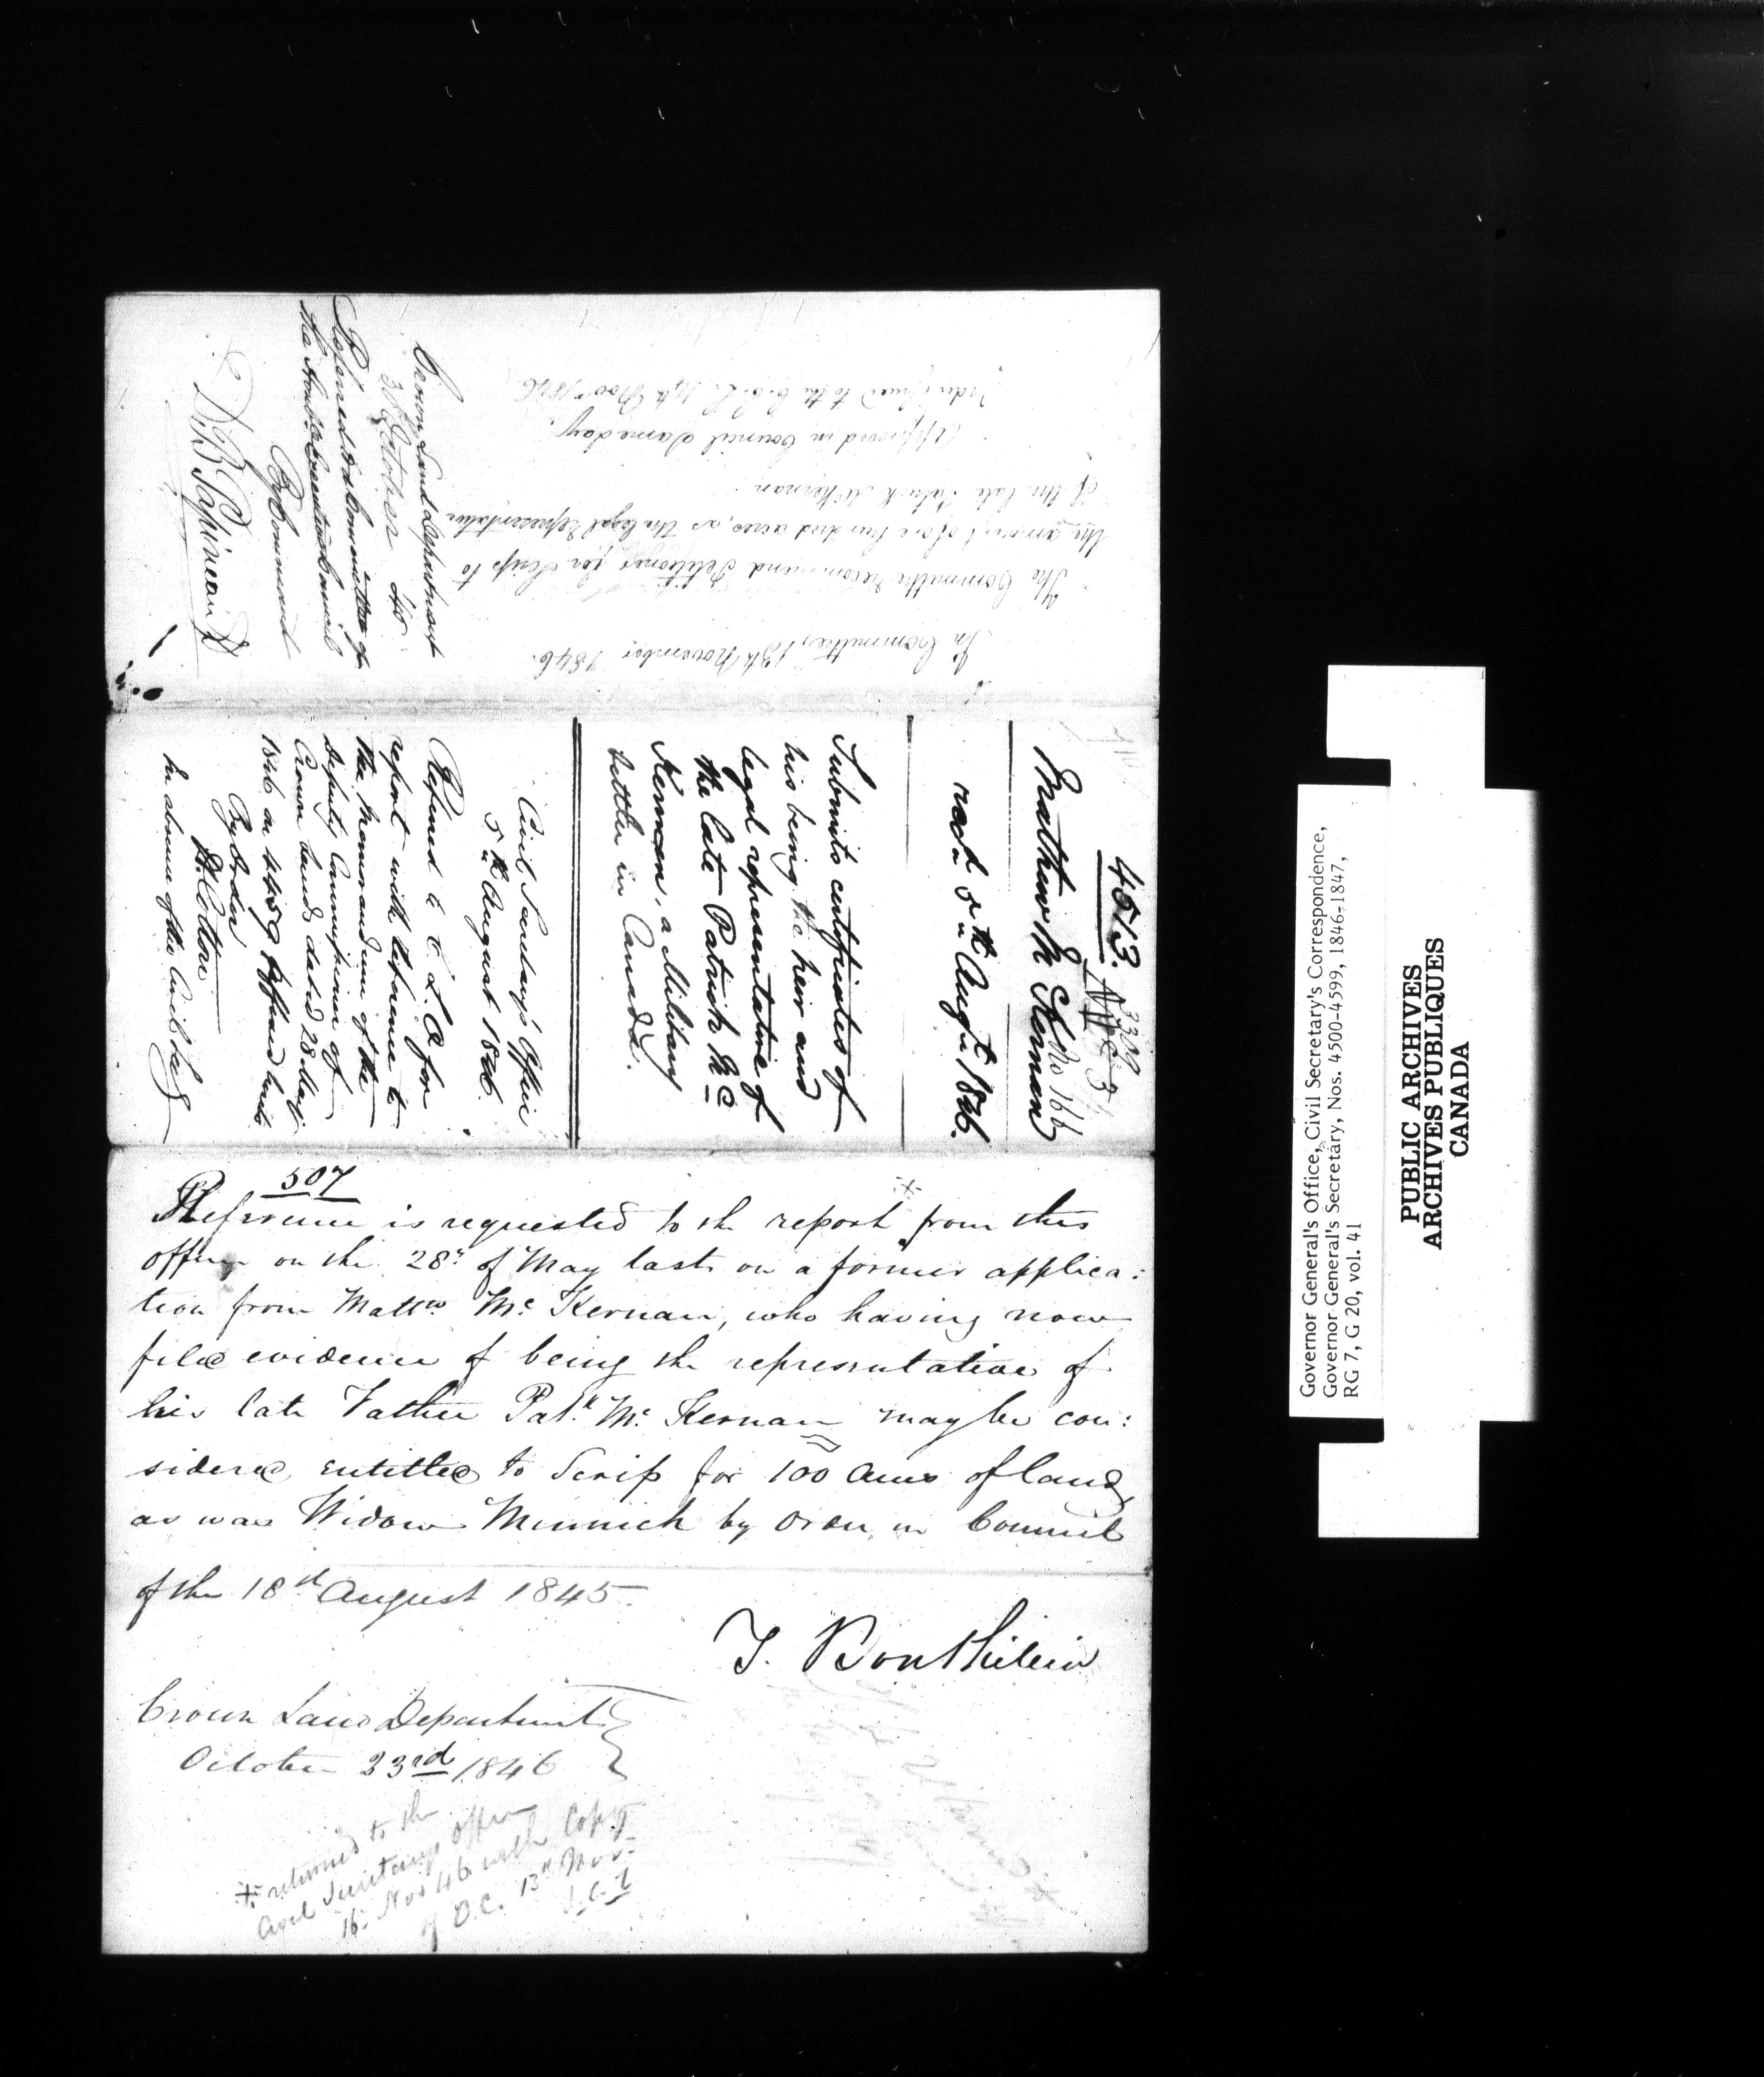 Crown Land Department
30 October 46
Referred to a Committee of
the Honble Executive Council
By Command
D.B. Papineau
In Committee, 13th November 1846.
The Committee recommend Petitioner for Scrip to
the amount of one hundred acres, as the legal representative
of the late Patrick McKernan
Approved in Council same day.
Order issued to the C.C.L. 14th Novr 1846
4513.
3309
No 166
Matthew Mc Kernan
recd 5th Augt 1846.
Submits certificates of
his being the heir and
legal representative of
the late Patrick Mc
Kernan, a Military
Settler in Canada.
Civil Secretary's Office
5th August 1846.
Refered to C. L. D. for
report with reference to
the memorandum of the
Deputy Commissioner of
Crown Lands dated 28 May
1846 on 4459 Affixed hereto
By Order
In absence of the Civil Secy
507
Reference is requested to the report from this
office on the 28th of May last on a former applica:
tion from Mattw Mc Kernan, who having now
filed evidence of being the representative of
his late Father Patk Mc Kernan may be con:
sidered entitled to Scrip for 100 acres of land,
as was Widow Minnick by Order in Council
of the 18th August 1845.
T. Bouthillier
Crown Land Department
October 23rd 1846
returned to the
Civil Secretarys Office
16 Nov 46 with Copy
of O.C. 13th Nov.
Governor General's Office, Civil Secretary's Correspondence,
Governor General's Secretary, Nos. 4500-4599, 1846-1847,
RG 7, G 20, vol. 41
PUBLIC ARCHIVES
ARCHIVES PUBLIQUES
CANADA